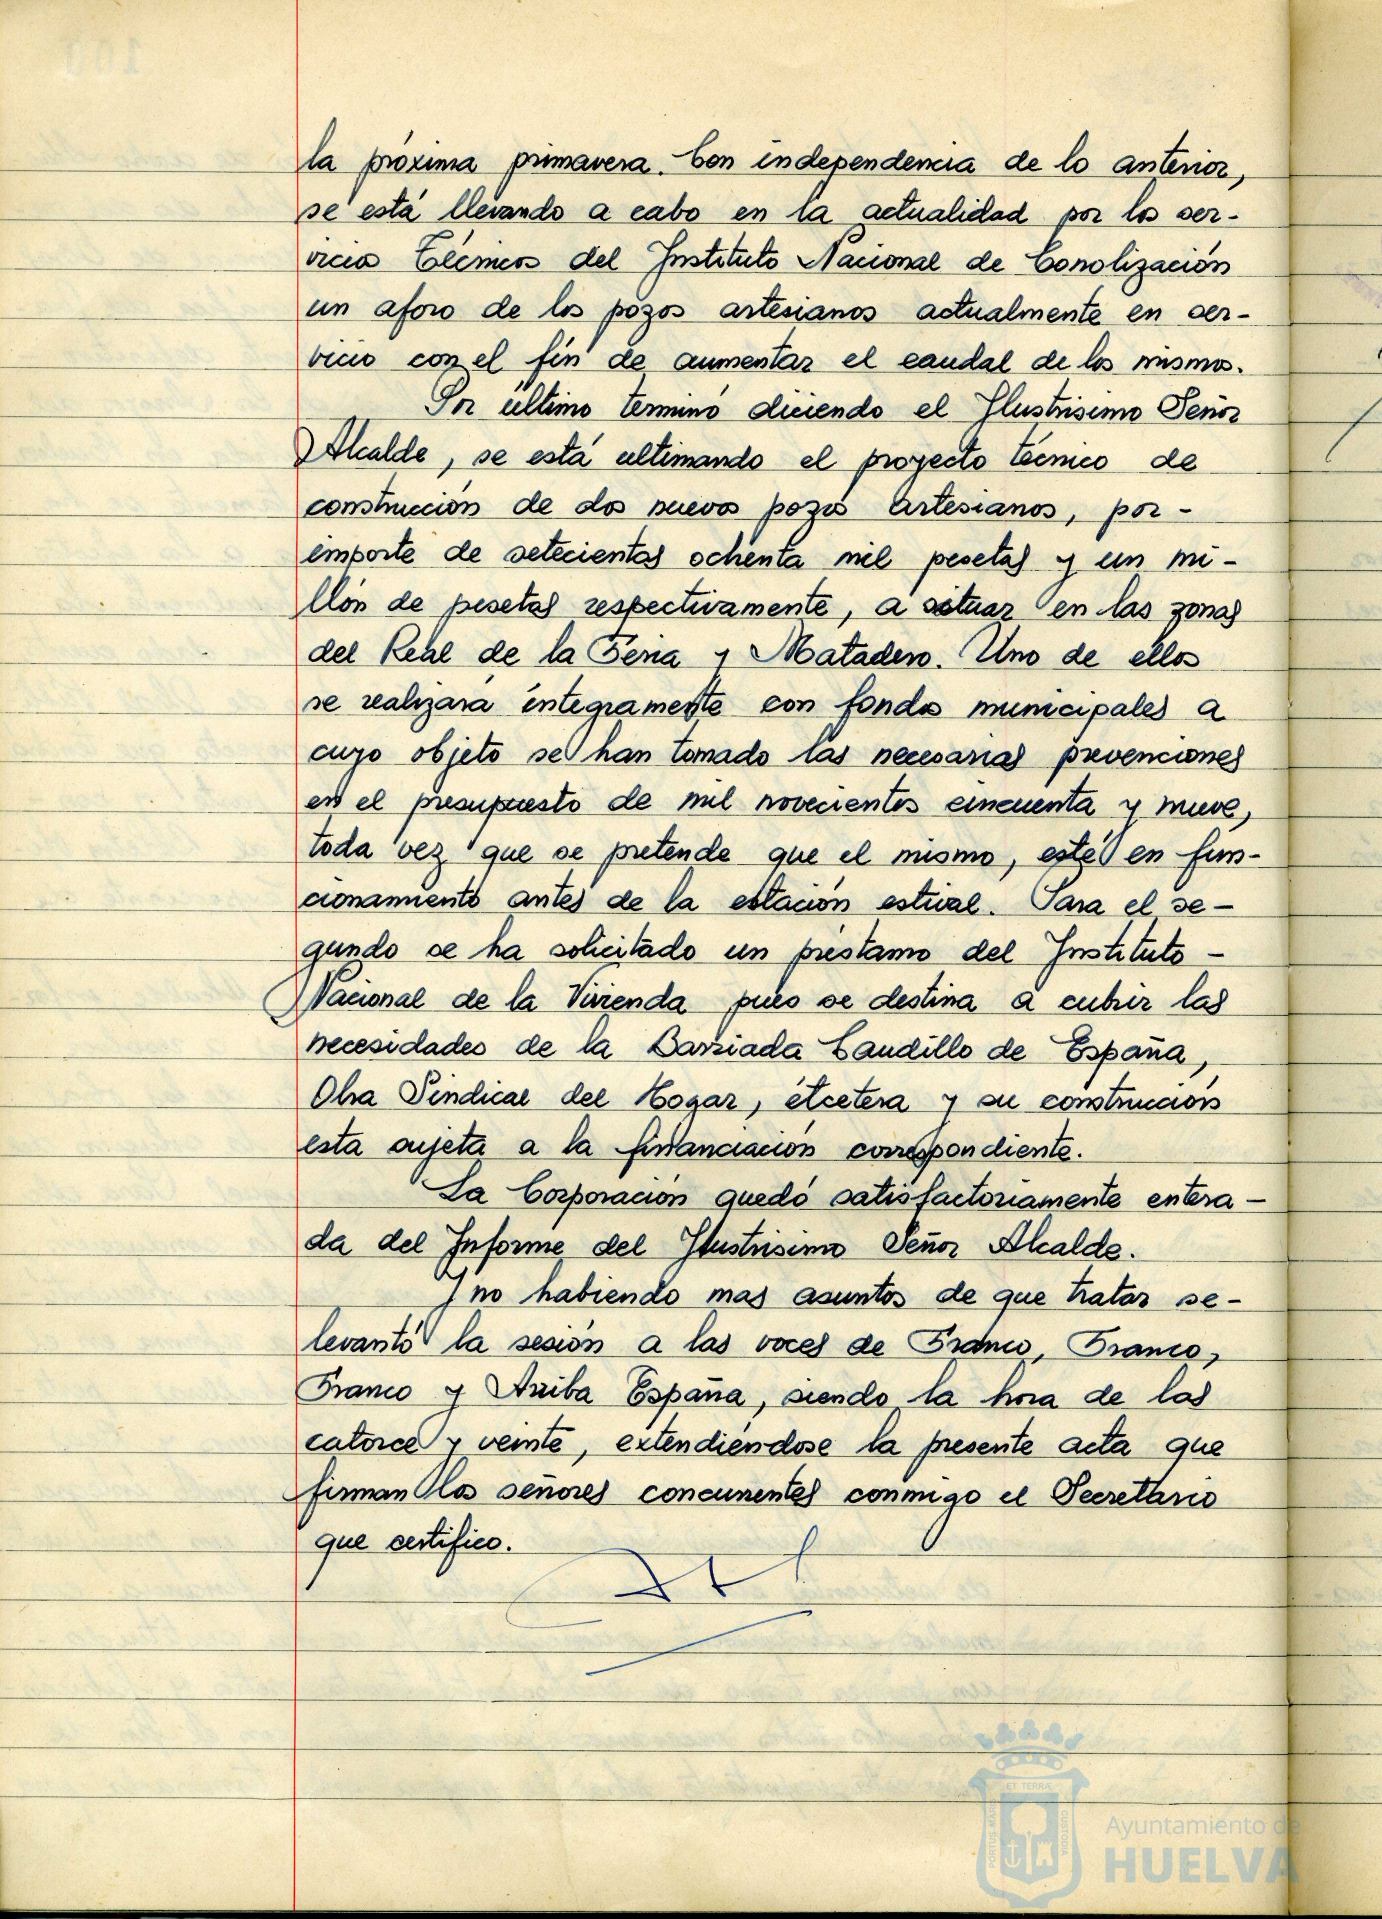 la próxima primavera. Con independencia de lo anterior,
se está llevando a cabo en la actualidad por los ser-
vicios Técnicos del Instituto Nacional de Conolización
un aforo de los pozos artesianos actualmente en ser-
vicio con el fín de aumentar el caudal de los mismos.
Por último terminó diciendo el Ilustrisimo Señor
Alcalde, se está ultimando el proyecto técnico de
construcción de dos nuevos pozos artesianos, por-
importe de setecientas ochenta mil pesetas y un mi-
llón de pesetas respectivamente, a situar en las zonas
del Real de la Feria y Matadero. Uno de ellos
se realizará íntegramente con fondos municipales a
cuyo objeto se han tomado las necesarias prevenciones
en el presupuesto de mil novecientos cincuenta y nueve,
toda vez que se pretende que el mismo, esté en fun-
cionamiento antes de la estación estival. Para el se-
gundo se ha solicitado un préstamo del Instituto-
Nacional de la Vivienda pues se destina a cubrir las
necesidades de la Barriada Caudillo de España,
Obra Sindical del Hogar, étcetera y su construcción
esta sujeta a la financiación correspondiente.
La Corporación quedó satisfactoriamente entera-
da del Informe del Ilustrisimo Señor Alcalde.
Y no habiendo mas asuntos de que tratar se-
levantó la sesión a las voces de Franco, Franco,
Franco y Arriba España, siendo la hora de las
catorce y veinte, extendiéndose la presente acta que
firman los señores concurrentes conmigo el Secretario
que certifico.
PORTUS MARIS ET TERRÆ CUSTODIA
Ayuntamiento de
HUELVA